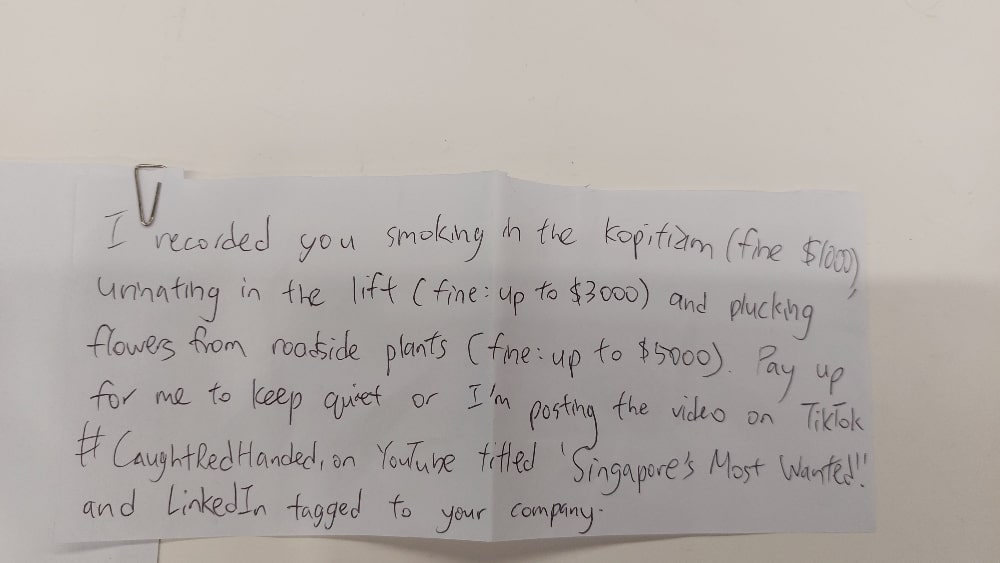 I recorded you smoking in the kopitiam (fine $1000),
urinating in the lift (fine: up to $3000) and plucking
flowers from roadside plants (fine: up to $5000). Pay up
for me to keep quiet or I'm posting the video on TikTok
#CaughtRedHanded, on YouTube titled 'Singapore's Most Wanted!'
and LinkedIn tagged to your company.